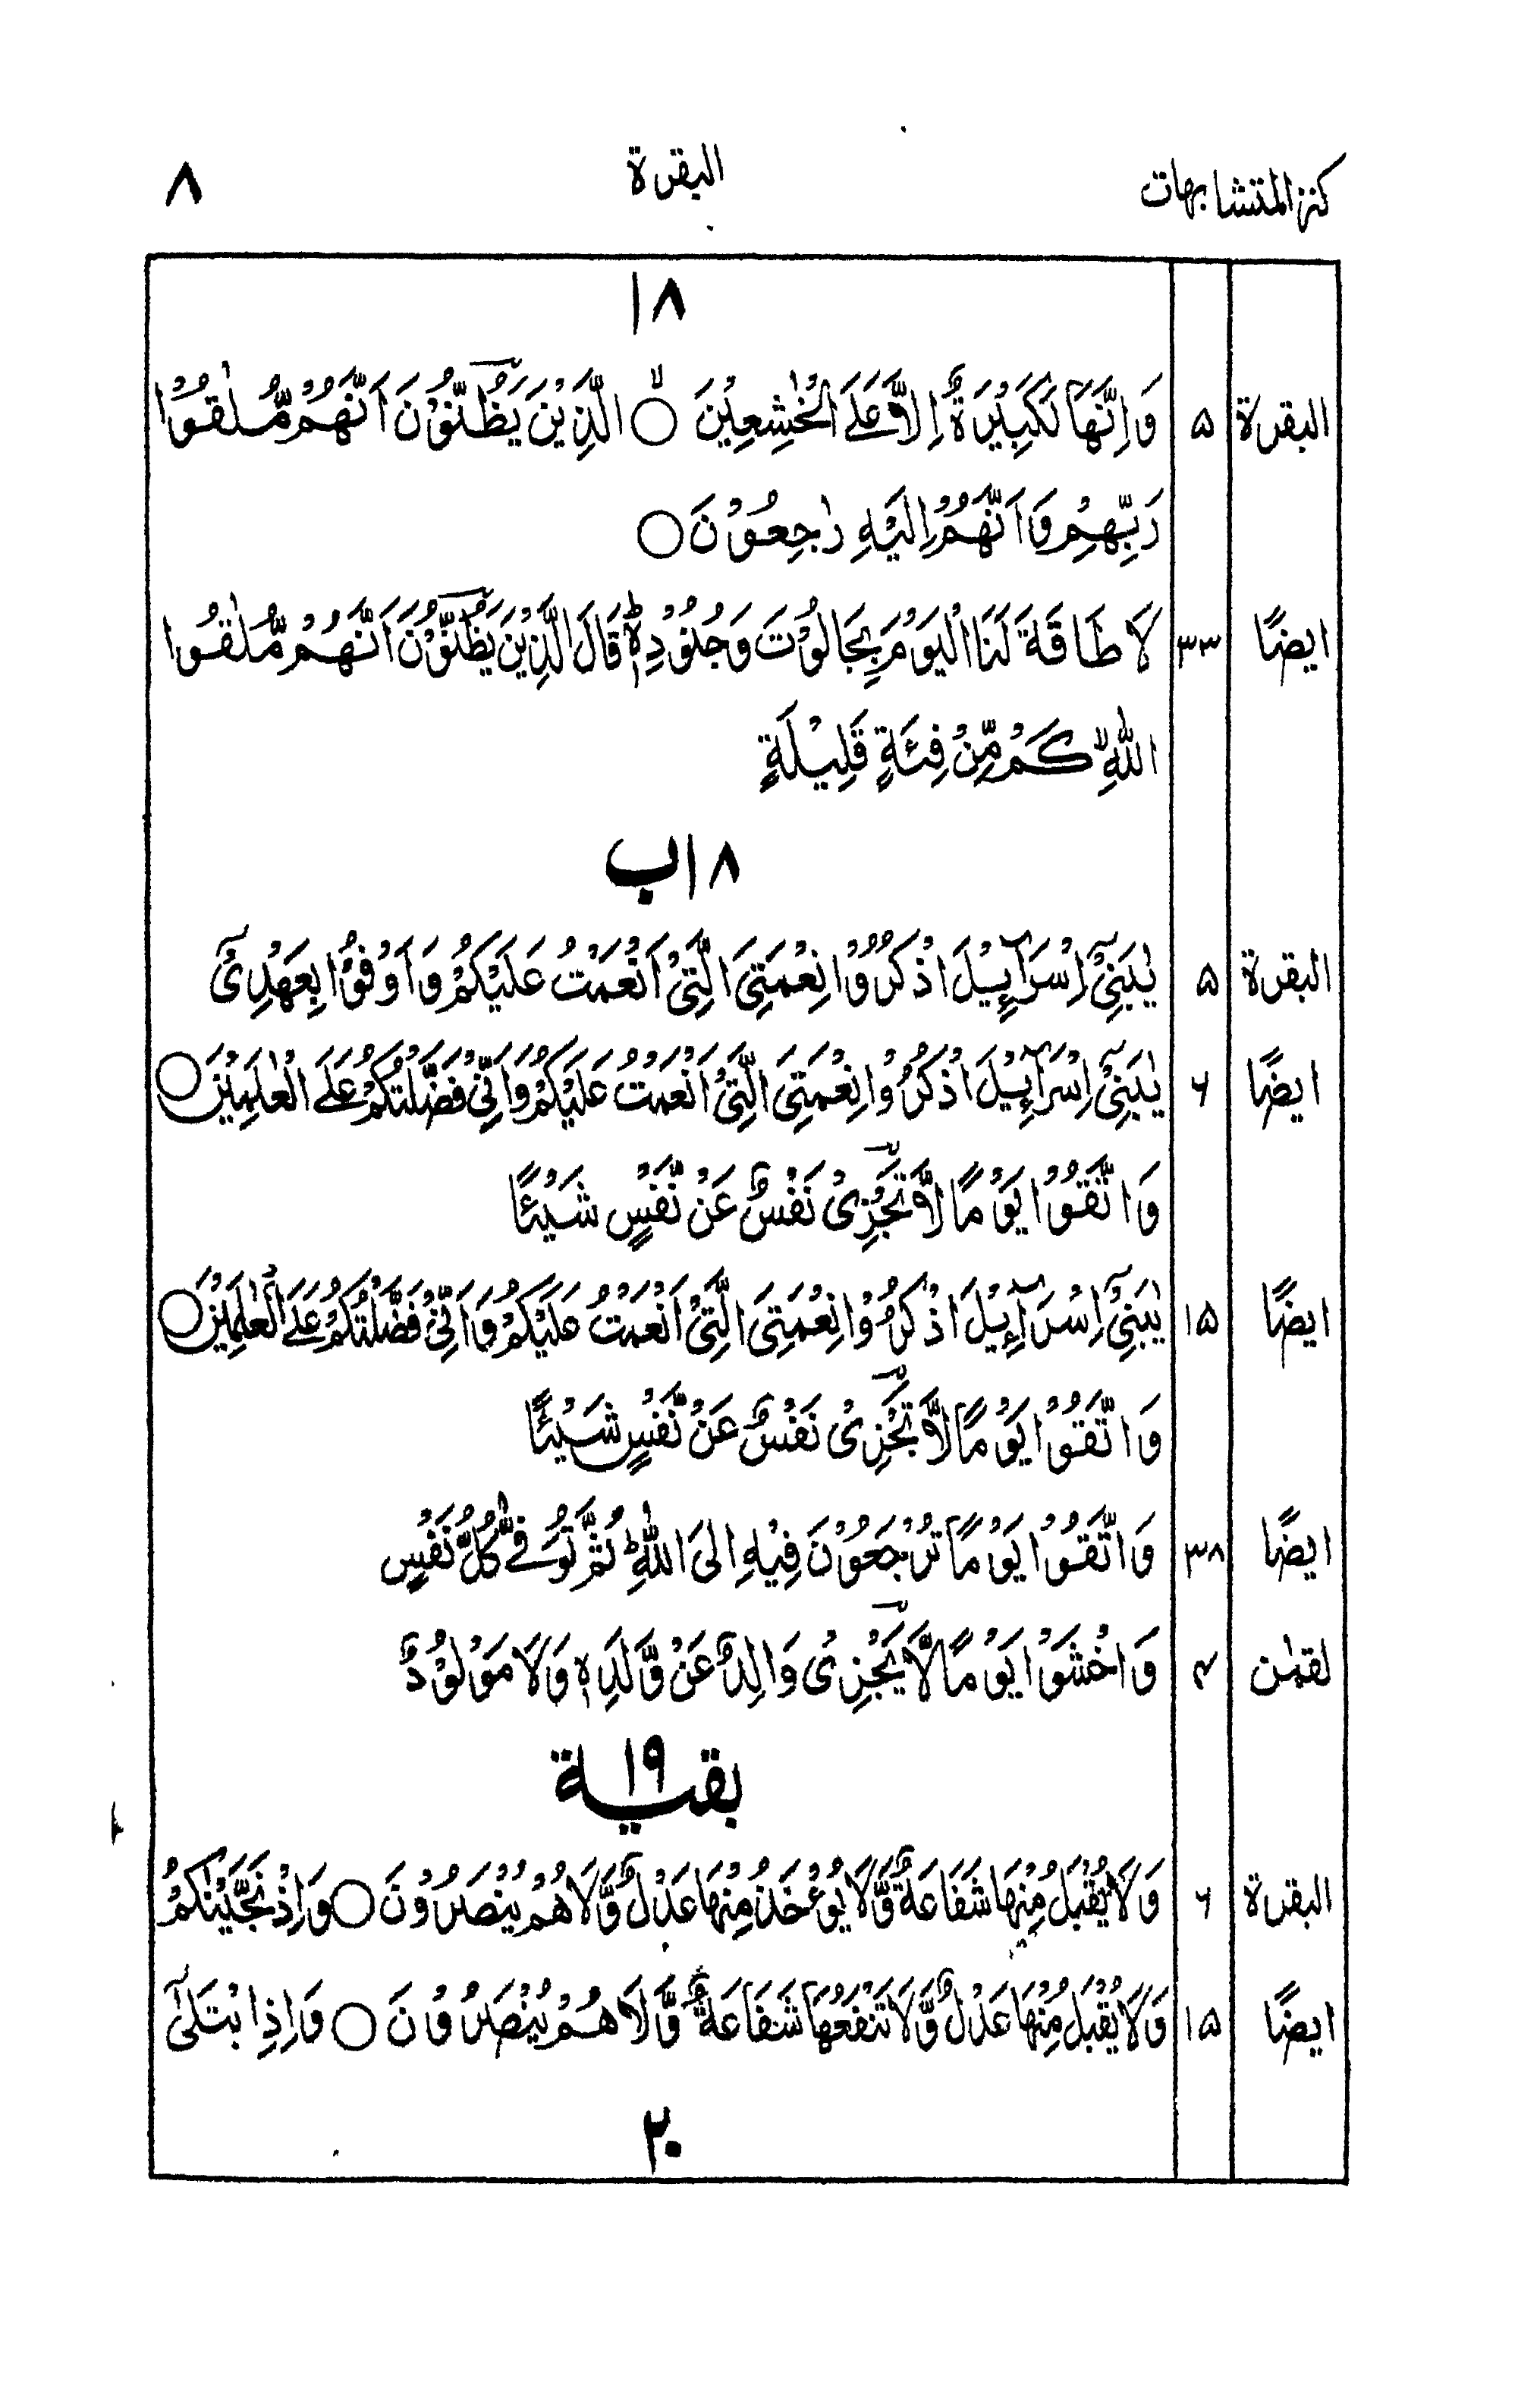 كنز المتشابهات
البقرة
٨
١٨
البقرة ۵ وَاِنَّهَا لَكَبِيْرَةٌ اِلَّا عَلَى الْخٰشِعِيْنَ ○ۙ الَّذِيْنَ يَظُنُّوْنَ اَنَّهُمْ مُّلٰقُوْا
رَبِّهِمْ وَاَنَّهُمْ اِلَيْهِ رٰجِعُوْنَ ○
ايضًا ٣٣ لَا طَاقَةَ لَنَا الْيَوْمَ بِجَالُوْتَ وَجُنُوْدِهٖ ؕ قَالَ الَّذِيْنَ يَظُنُّوْنَ اَنَّهُمْ مُّلٰقُوا
اللّٰهِ ۙ كَمْ مِّنْ فِئَةٍ قَلِيْلَةٍ
١٨ب
البقرة ۵ يٰبَنِيْٓ اِسْرَآءِيْلَ اذْكُرُوْا نِعْمَتِيَ الَّتِيْٓ اَنْعَمْتُ عَلَيْكُمْ وَاَوْفُوْا بِعَهْدِيْٓ
ايضًا ۶ يٰبَنِيْٓ اِسْرَآءِيْلَ اذْكُرُوْا نِعْمَتِيَ الَّتِيْٓ اَنْعَمْتُ عَلَيْكُمْ وَاَنِّيْ فَضَّلْتُكُمْ عَلَى الْعٰلَمِيْنَ ○
وَاتَّقُوْا يَوْمًا لَّا تَجْزِيْ نَفْسٌ عَنْ نَّفْسٍ شَيْئًا
ايضًا ١۵ يٰبَنِيْٓ اِسْرَآءِيْلَ اذْكُرُوْا نِعْمَتِيَ الَّتِيْٓ اَنْعَمْتُ عَلَيْكُمْ وَاَنِّيْ فَضَّلْتُكُمْ عَلَى الْعٰلَمِيْنَ ○
وَاتَّقُوْا يَوْمًا لَّا تَجْزِيْ نَفْسٌ عَنْ نَّفْسٍ شَيْئًا
ايضًا ٣٨ وَاتَّقُوْا يَوْمًا تُرْجَعُوْنَ فِيْهِ اِلَى اللّٰهِ ؕ ثُمَّ تُوَفّٰى كُلُّ نَفْسٍ
لقمٰن ۴ وَاخْشَوْا يَوْمًا لَّا يَجْزِيْ وَالِدٌ عَنْ وَّلَدِهٖ وَلَا مَوْلُوْدٌ
بقية ١٩
البقرة ۶ وَلَا يُقْبَلُ مِنْهَا شَفَاعَةٌ وَّلَا يُؤْخَذُ مِنْهَا عَدْلٌ وَّلَا هُمْ يُنْصَرُوْنَ ○ وَاِذْ نَجَّيْنٰكُمْ
ايضًا ١۵ وَلَا يُقْبَلُ مِنْهَا عَدْلٌ وَّلَا تَنْفَعُهَا شَفَاعَةٌ وَّلَا هُمْ يُنْصَرُوْنَ ○ وَاِذِ ابْتَلٰىٓ
٢٠